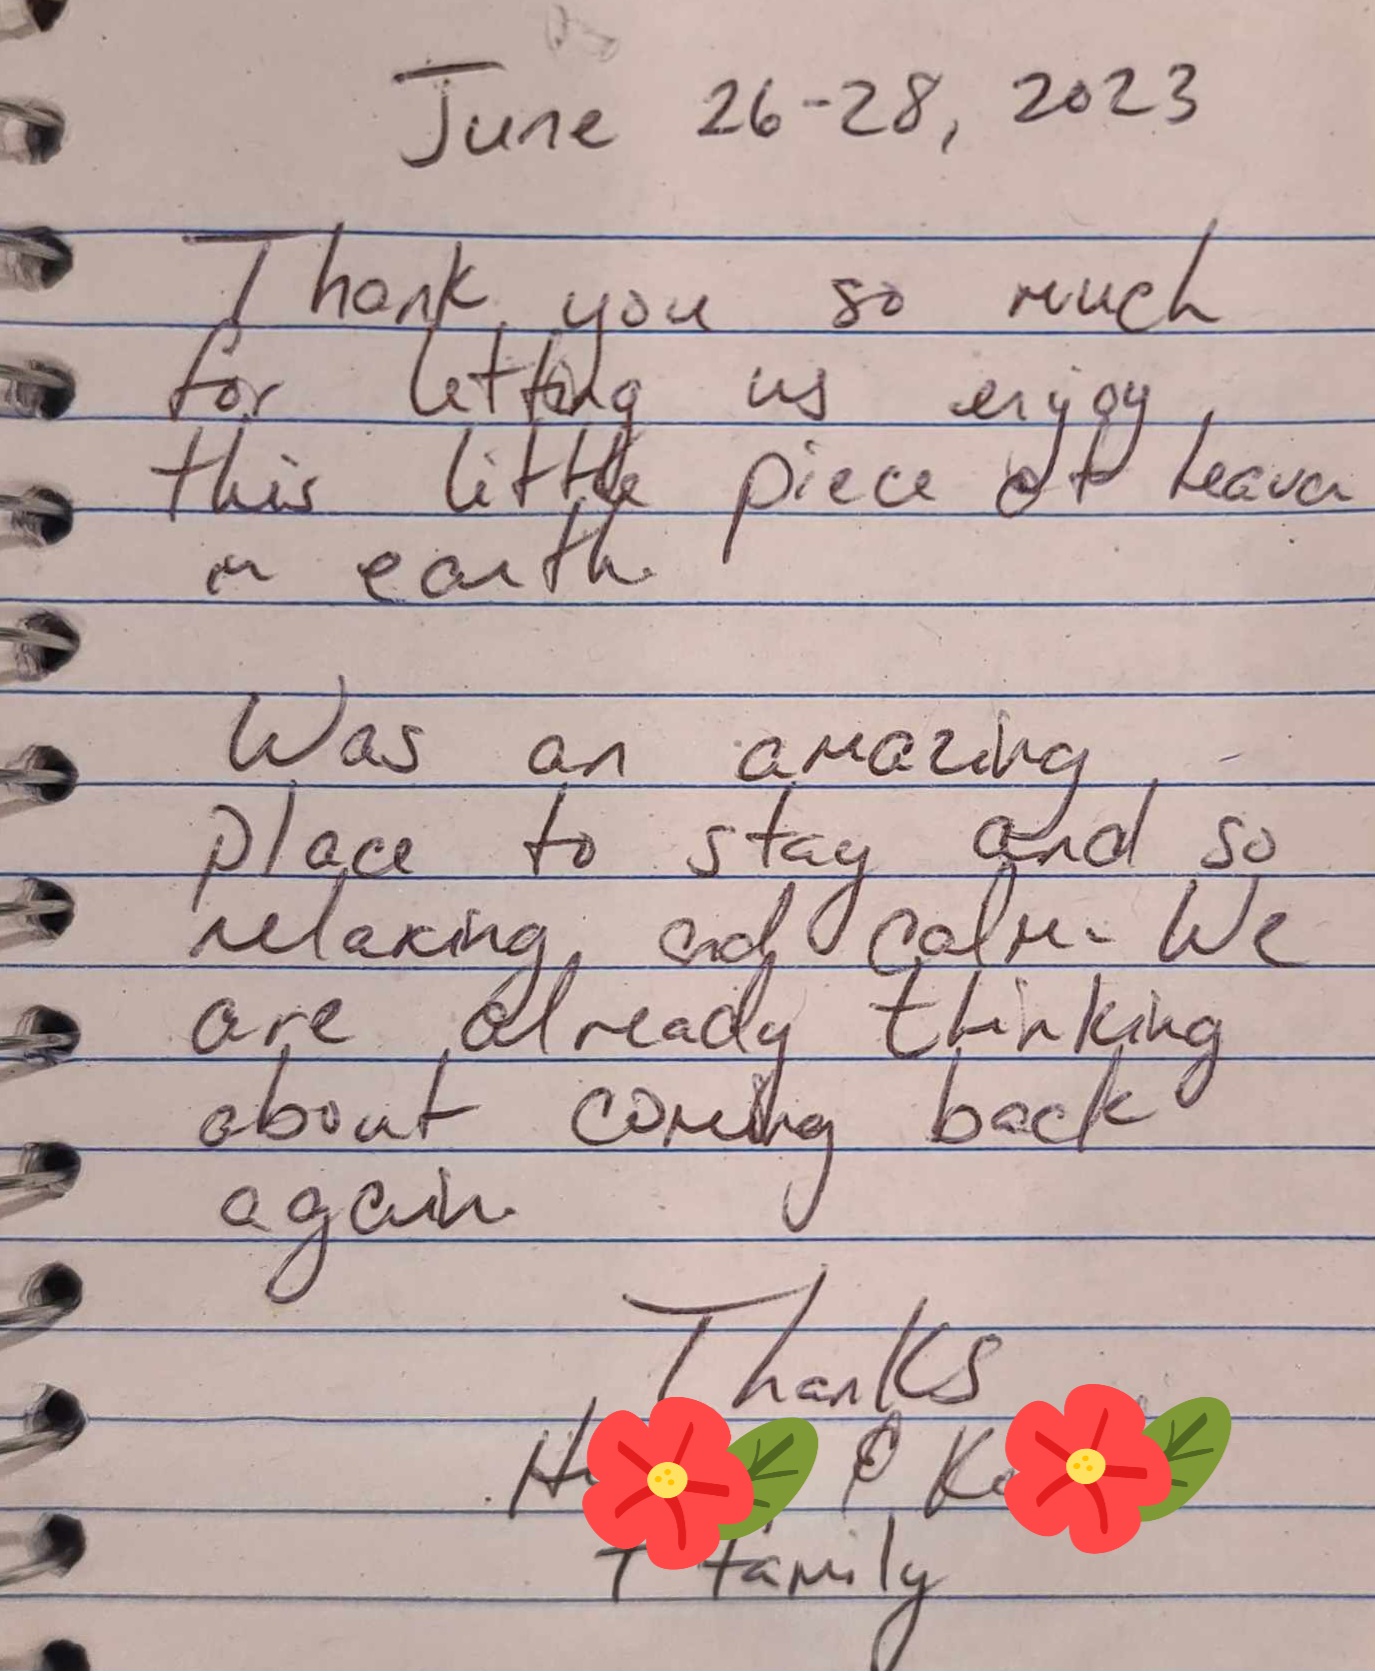 June 26-28, 2023
Thank you so much
for letting us enjoy
this little piece of heaven
on earth.
Was an amazing
place to stay and so
relaxing and calm. We
are already thinking
about coming back
again.
Thanks
& 
+ family